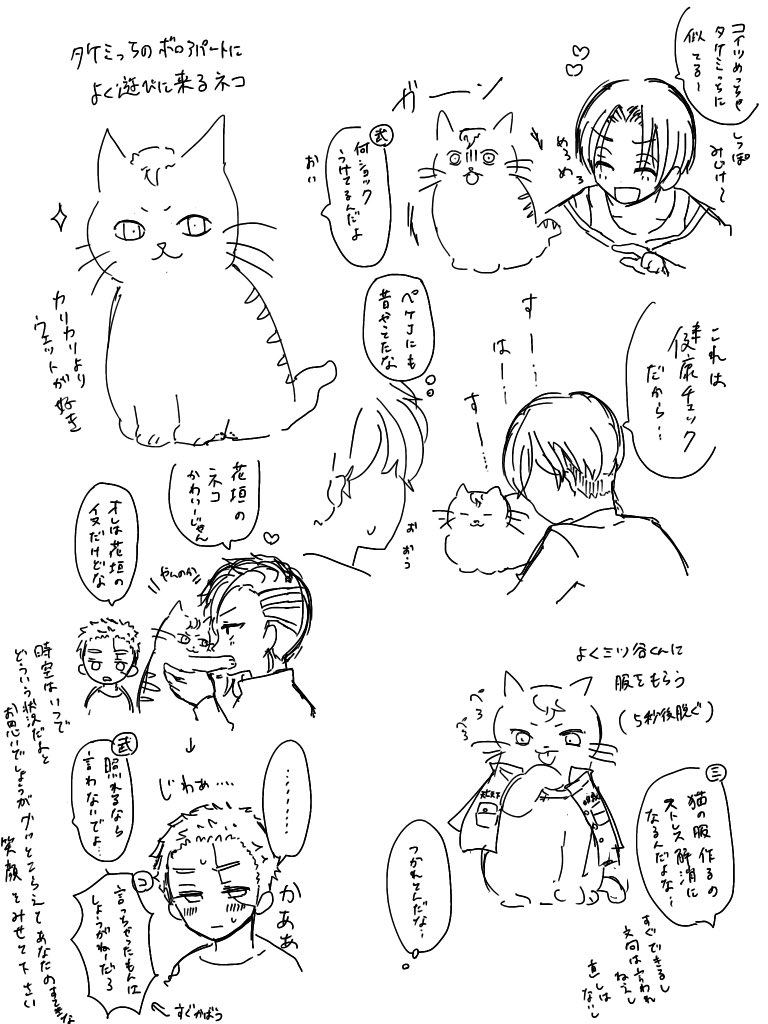 タケミっちのボロアパートに
よく遊びに来るネコ
カリカリより
ウェットが好き
コイツめっちゃ
タケミっちに
似てる〜
しっぽ
みじけ〜
めろ
めろ
ガーン
武
何ショック
うけてるんだよ
おい
これは
健康チェック
だから…
すー…
はー…
すー…
ペケJにも
昔やってたな
おおう
花垣の
ネコ
かわいーじゃん
オレは花垣の
イヌだけどな
やんのか
時空はいつで
どういう状況だよと
お思いでしょうがグッとこらえてあなたのすてきな
笑顔をみせて下さい
じわぁ‥‥
‥‥‥‥
武
照れるなら
言わないでよ…
コ
言っちゃったもんは
しょうがねーだろ
かああ
すぐかばう
よくミツ谷くんに
服をもらう
(5秒後脱ぐ)
ぺろ
ぺろ
三
猫の服作るの
ストレス解消に
なるんだよな…
すぐできるし
文句は言われ
ねえし
直しは
ないし
つかれてんだな…